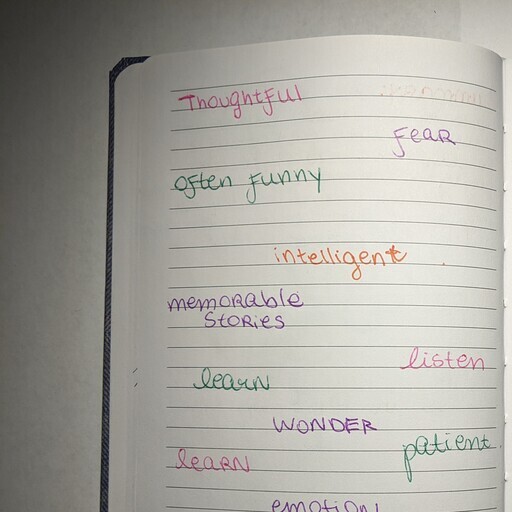 Thoughtful
fear
often funny
intelligent
memorable
stories
listen
learn
WONDER
patient
learn
emotion